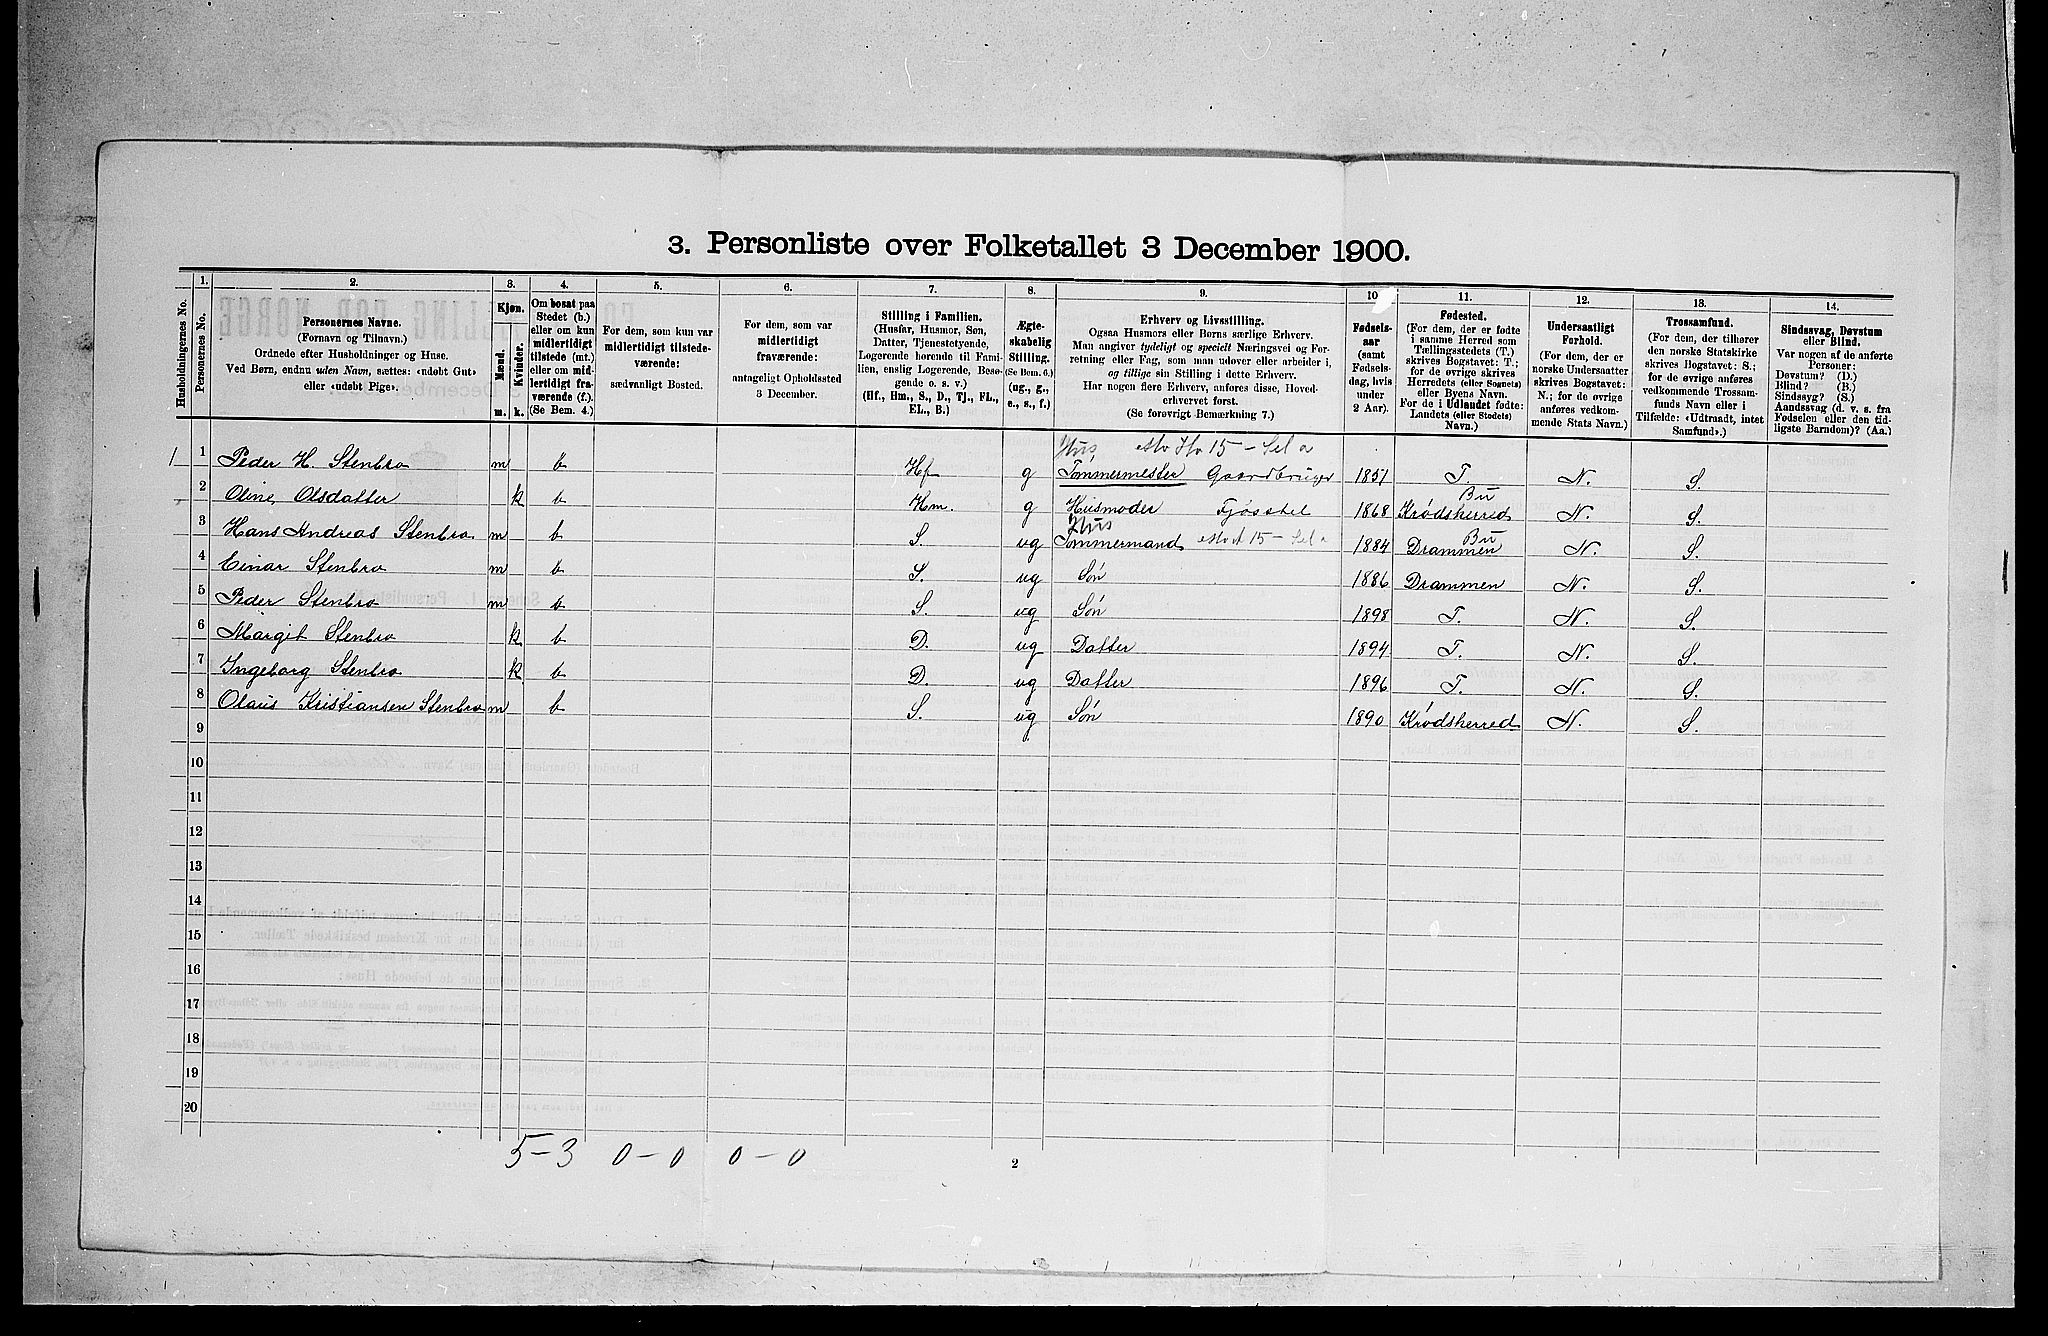 3. Personliste over Folketallet 3 December 1900.
Husholdningernes No.
1. Personernes No.
2. Personernes Navne.
(Fornavn og Tilnavn.)
Ordnede efter Husholdninger og Huse.
Ved Børn, endnu uden Navn, sættes: «udøbt Gut»
eller «udøbt Pige».
3. Kjøn.
Mænd. Kvinder.
m. k.
4. Om bosat paa
Stedet (b.)
eller om kun
midlertidigt
tilstede (mt.)
eller om mid-
lertidigt fra-
værende (f.)
(Se Bem. 4.)
5. For dem, som kun var
midlertidigt tilstede-
værende:
sædvanligt Bosted.
6. For dem, som var
midlertidigt
fraværende:
antageligt Opholdssted
3 December.
7. Stilling i Familien.
(Husfar, Husmor, Søn,
Datter, Tjenestetyende,
Logerende hørende til Fami-
lien, enslig Logerende, Besø-
gende o. s. v.)
(Hf., Hm., S., D., Tj., FL.,
EL., B.)
8. Ægte-
skabelig
Stilling.
(Se Bem. 6.)
(ug., g.,
e., s., f.)
9. Erhverv og Livsstilling.
Ogsaa Husmors eller Børns særlige Erhverv.
Man angiver tydeligt og specielt Næringsvei og For-
retning eller Fag, som man udøver eller arbeider i,
og tillige sin Stilling i dette Erhverv.
Har nogen flere Erhverv, anføres disse, Hoved-
erhvervet først.
(Se forøvrigt Bemærkning 7.)
10 Fødsels-
aar
(samt
Fødsels-
dag, hvis
under
2 Aar).
11. Fødested.
(For dem, der er fødte
i samme Herred som
Tællingsstedets (T.)
skrives Bogstavet: T.;
for de øvrige skrives
Herredets (eller Sognets)
eller Byens Navn.
For de i Udlandet fødte:
Landets (eller Stedets)
Navn.)
12. Undersaatligt
Forhold.
(For dem, der er
norske Undersaatter
skrives Bogstavet:
N.; for de øvrige
anføres vedkom-
mende Stats Navn.)
13. Trossamfund.
(For dem, der tilhører
den norske Statskirke
skrives Bogstavet: S.;
for de øvrige anføres
vedkommende Trossam-
funds Navn eller i
Tilfælde: «Udtraadt, intet
Samfund».)
14. Sindssvag, Døvstum
eller Blind.
Var nogen af de anførte
Personer:
Døvstum? (D.)
Blind? (B.)
Sindssyg? (S.)
Aandssvag (d. v. s. fra
Fødselen eller den tid-
ligste Barndom)? (Aa.)
Hus
1 1 Peder H. Stenbro m b Hf g Tømmermester Gaardbruger 1851 T. N. S.
Bu
2 Oline Olsdatter k b Hm. g Husmoder Fjøsstel 1868 Krødsherred N. S.
Hus Bu
3 Hans Andreas Stenbro m b S. ug Tømmermand 1884 Drammen N. S.
4 Einar Stenbro m b S. ug Søn 1886 Drammen N. S.
5 Peder Stenbro m b S. ug Søn 1898 T. N. S.
6 Margit Stenbro k b D. ug Datter 1894 T. N. S.
7 Ingeborg Stenbro k b D. ug Datter 1896 T. N. S.
8 Olaus Kristiansen Stenbro m b S. ug Søn 1890 Krødsherred N. S.
9
10
11
12
13
14
15
16
17
18
19
20
5-3 0-0 0-0
2